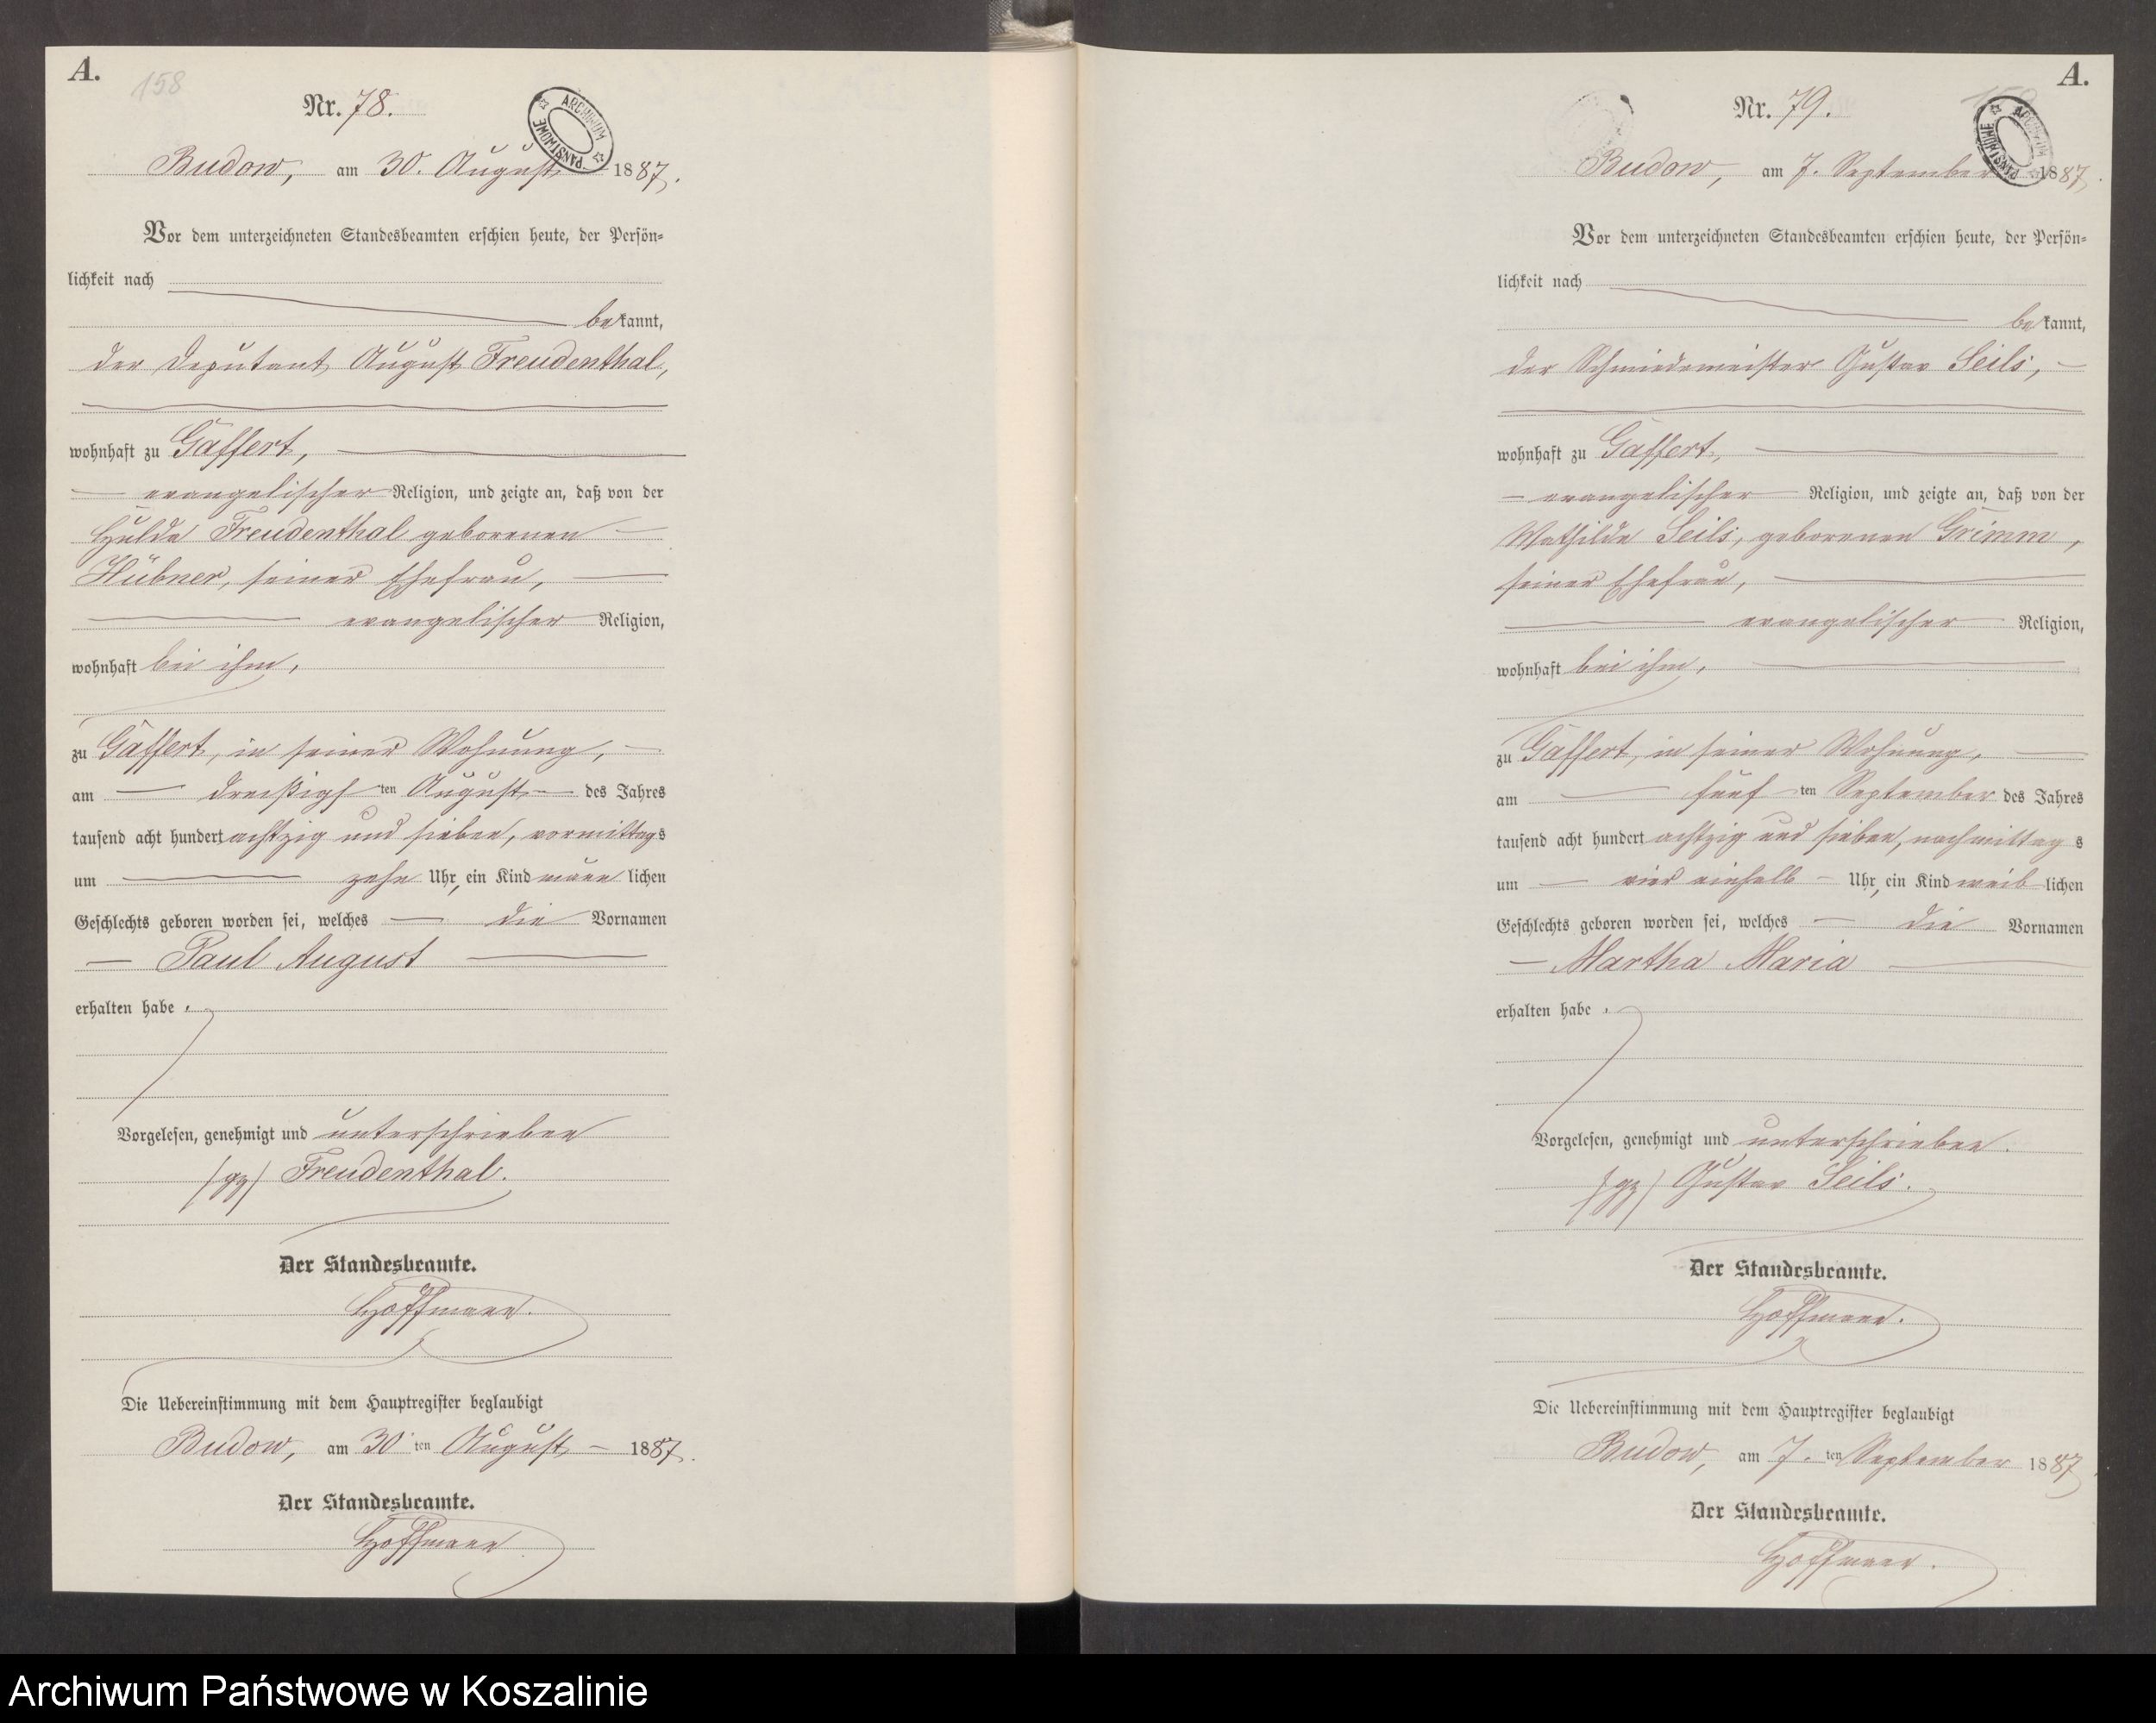 A.
158
Nr. 78.
ARCHIWUM PAŃSTWOWE
Budow, am 30. August 1887.
Vor dem unterzeichneten Standesbeamten erschien heute, der Persön-
lichkeit nach
bekannt,
der Deputant August Freudenthal,
wohnhaft zu Gaffert,
evangelischer Religion, und zeigte an, daß von der
Hulda Freudenthal geborenen
Hübner, seiner Ehefrau,
evangelischer Religion,
wohnhaft bei ihm,
zu Gaffert, in seiner Wohnung,
am dreißigsten August des Jahres
tausend acht hundert achtzig und sieben, vormittags
um zehn Uhr, ein Kind männlichen
Geschlechts geboren worden sei, welches die Vornamen
Paul August
erhalten habe.
Vorgelesen, genehmigt und unterschrieben
(gz) Freudenthal.
Der Standesbeamte.
Hoffmann.
Die Uebereinstimmung mit dem Hauptregister beglaubigt
Budow, am 30ten August 1887.
Der Standesbeamte.
Hoffmann
A.
Nr. 79.
ARCHIWUM PAŃSTWOWE
Budow, am 7. September 1887.
Vor dem unterzeichneten Standesbeamten erschien heute, der Persön-
lichkeit nach
bekannt,
der Schmiedemeister Gustav Seils,
wohnhaft zu Gaffert,
evangelischer Religion, und zeigte an, daß von der
Mathilde Seils, geborenen Grimm,
seiner Ehefrau,
evangelischer Religion,
wohnhaft bei ihm,
zu Gaffert, in seiner Wohnung,
am fünften September des Jahres
tausend acht hundert achtzig und sieben, nachmittags
um vier einhalb Uhr, ein Kind weiblichen
Geschlechts geboren worden sei, welches die Vornamen
Martha Maria
erhalten habe.
Vorgelesen, genehmigt und unterschrieben.
(gz) Gustav Seils.
Der Standesbeamte.
Hoffmann.
Die Uebereinstimmung mit dem Hauptregister beglaubigt
Budow, am 7.ten September 1887
Der Standesbeamte.
Hoffmann.
Archiwum Państwowe w Koszalinie